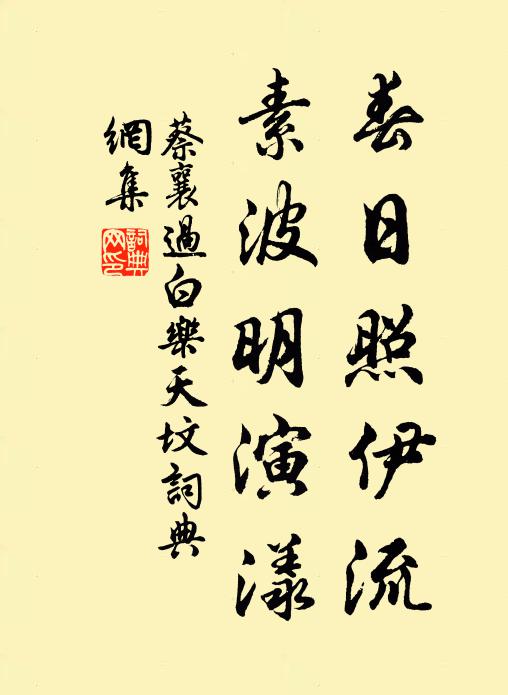 春日照伊流
素波明演漾
蔡襄過白樂天墳詞典
網集
詞典
网印